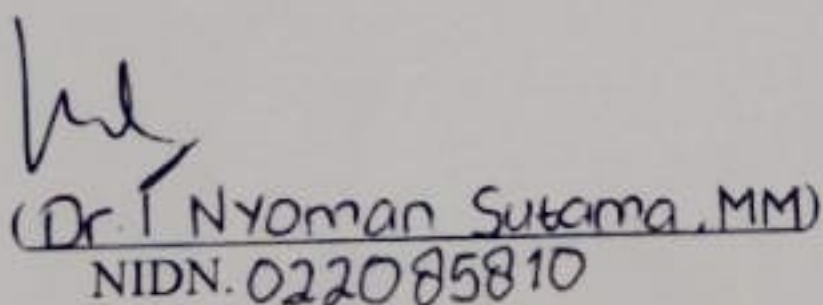 (Dr. I Nyoman Sutama, MM)
NIDN. 022085810